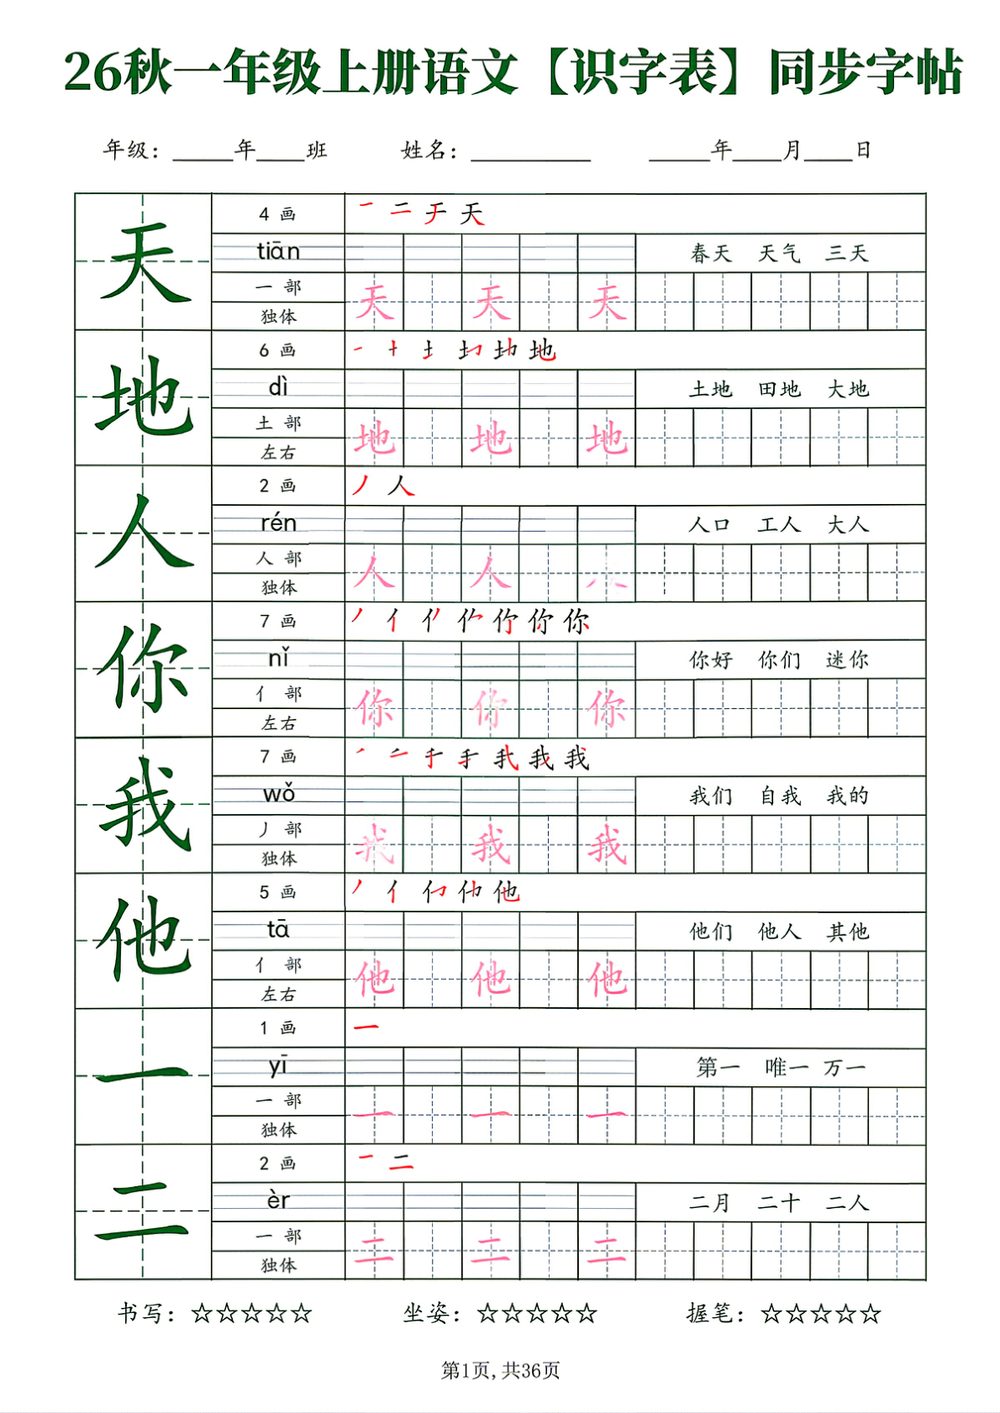 26秋一年级上册语文【识字表】同步字帖
年级：_____年____班 姓名：__________ _____年____月____日
天 4 画 一 二 于 天
tiān 春天 天气 三天
一 部 天 天 天
独体
地 6 画 地
dì 土地 田地 大地
土 部 地 地 地
左右
人 2 画 丿 人
rén 人口 工人 大人
人 部 人 人
独体
你 7 画 丿 亻 你 你
nǐ 你好 你们 迷你
亻 部 你 你 你
左右
我 7 画 我 我
wǒ 我们 自我 我的
丿 部 我 我 我
独体
他 5 画 丿 亻 他
tā 他们 他人 其他
亻 部 他 他 他
左右
一 1 画 一
yī 第一 唯一 万一
一 部 一 一 一
独体
二 2 画 一 二
èr 二月 二十 二人
一 部 二 二 二
独体
书写：☆☆☆☆☆ 坐姿：☆☆☆☆☆ 握笔：☆☆☆☆☆
第1页,共36页